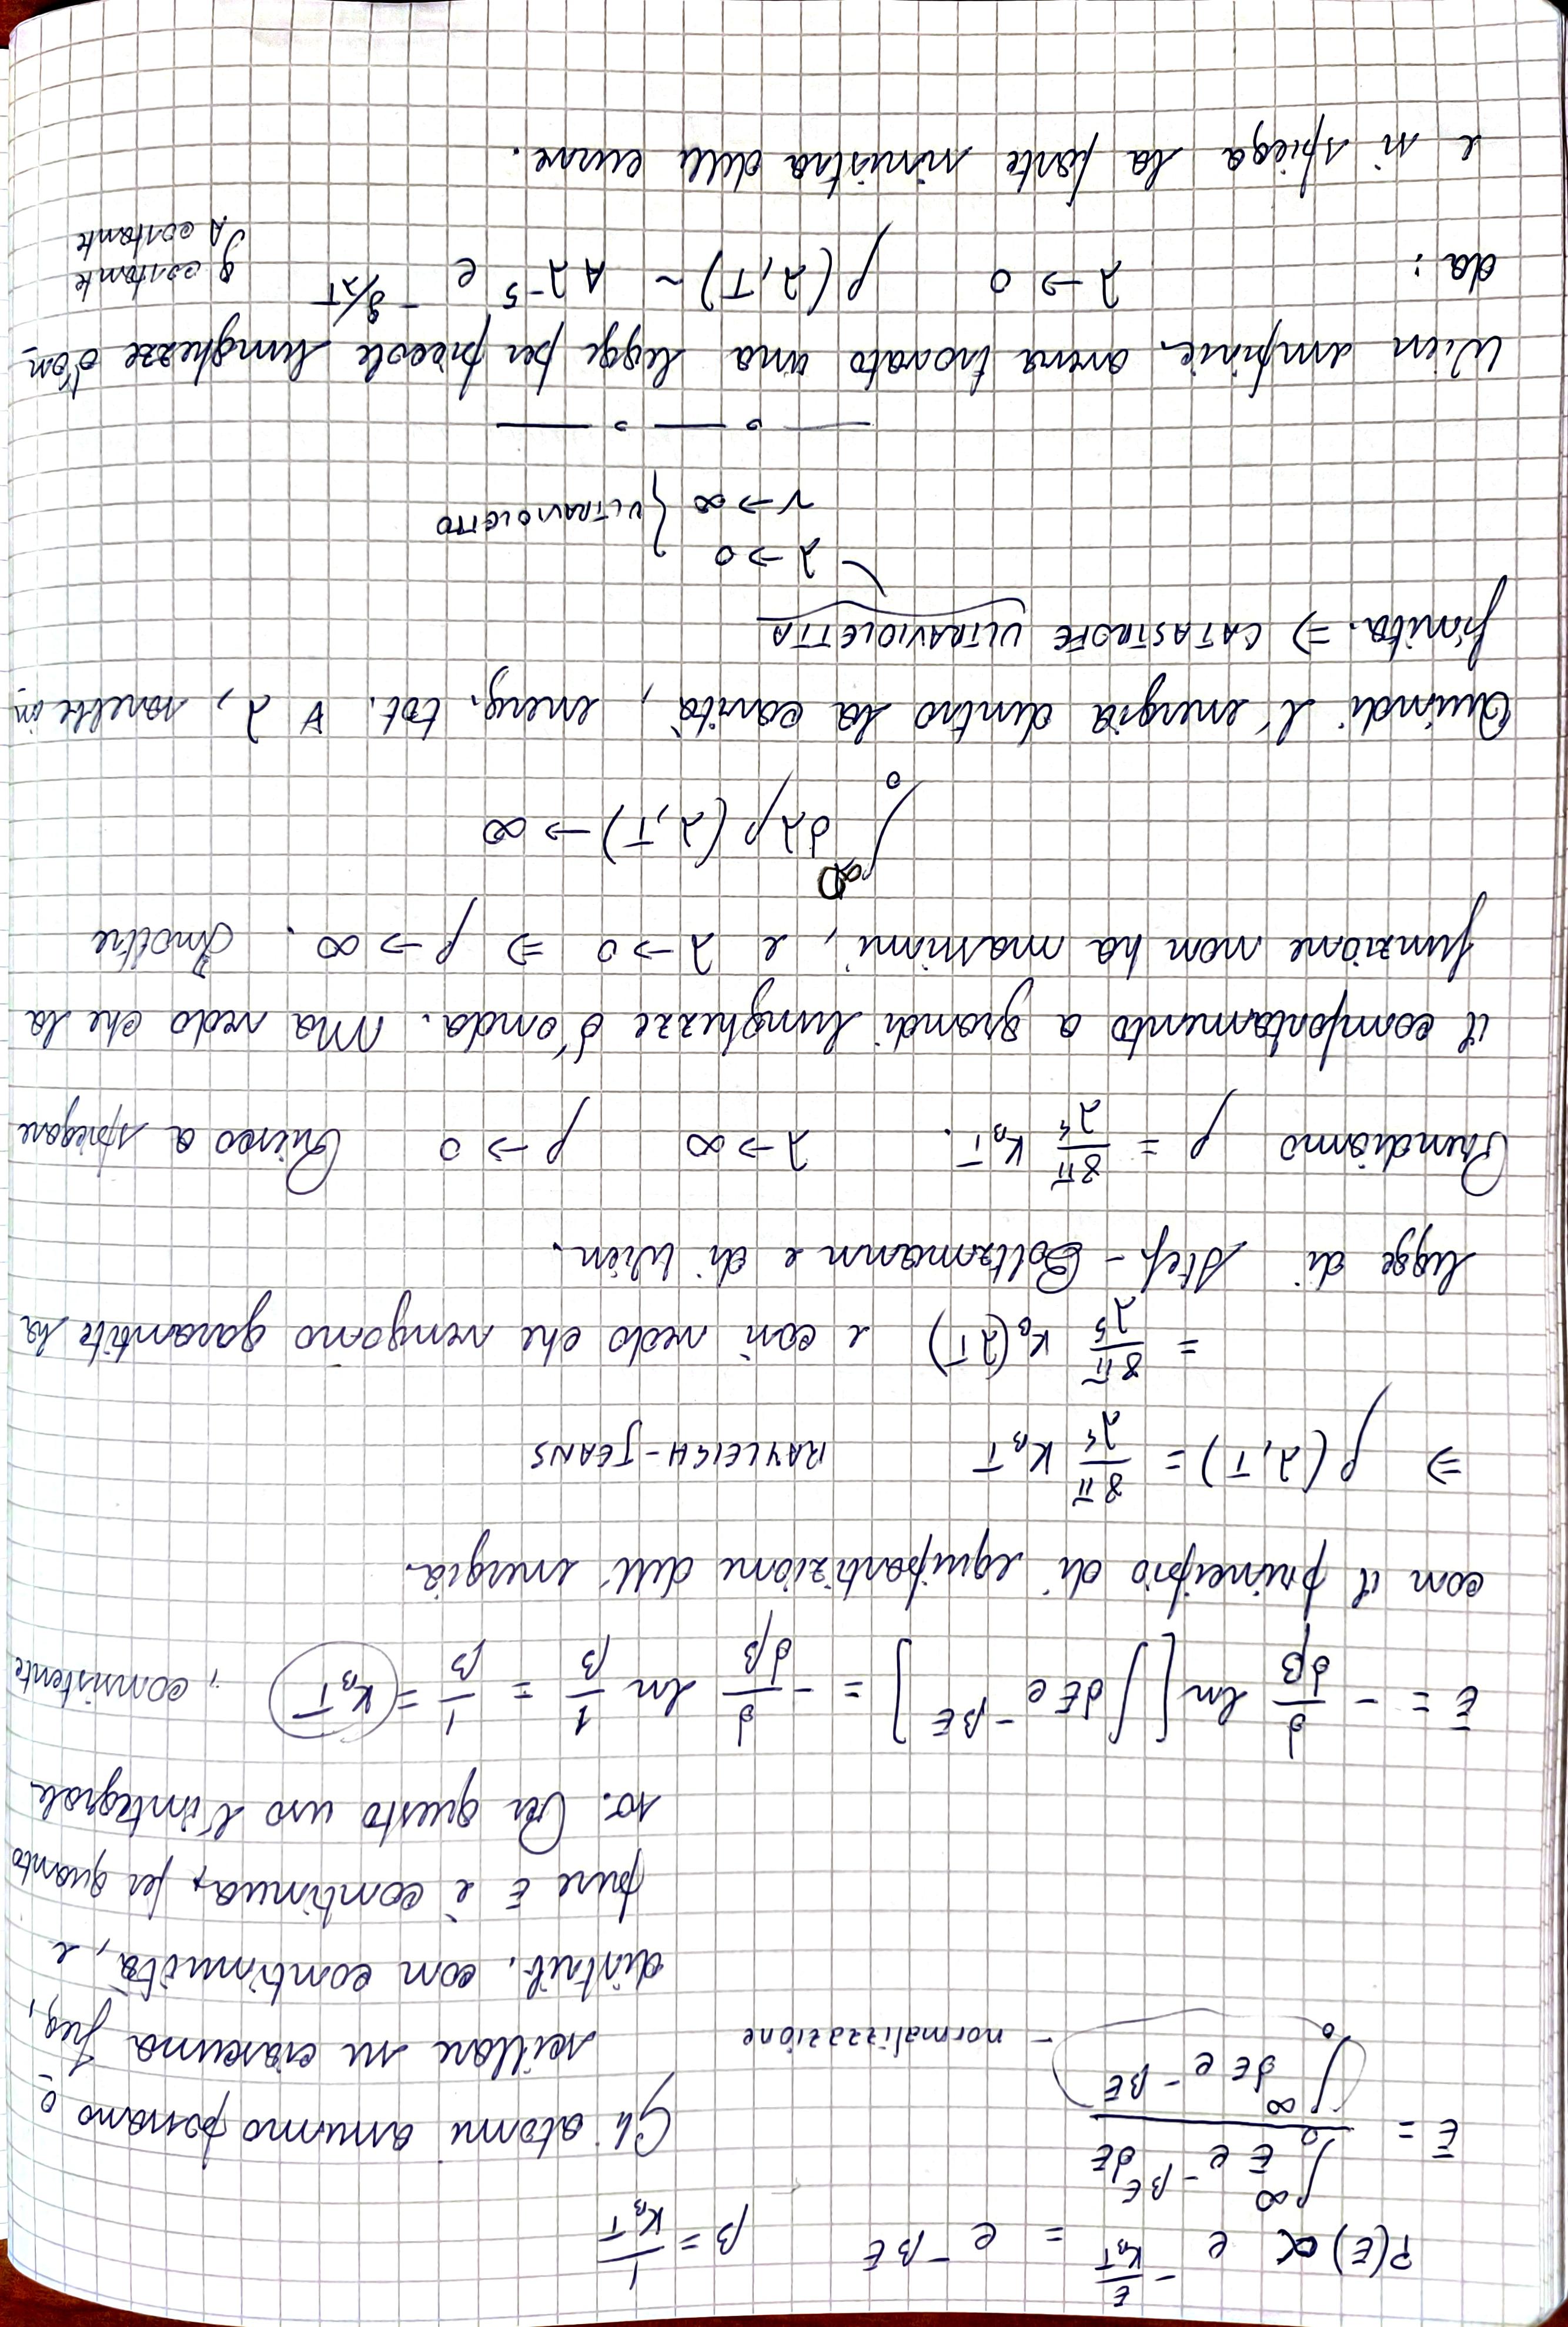 P(E) ∝ e^{-E/K_BT} = e^{-βE}    β = 1/K_BT
Ē = ∫_0^∞ E e^{-βE} dE / ∫_0^∞ dE e^{-βE} – normalizzazione
Gli atomi assumo possano o
scillare su ciascuna freq,
distrib. con continuità, e
pure E è continua, per quanto
so. Per questo uso l'integrale
Ē = - d/dβ ln [∫ dE e^{-βE}] = - d/dβ ln 1/β = 1/β = K_BT , consistente
con il principio di equipartizione dell'energia.
⇒ ρ(λ,T) = 8π/λ⁴ K_BT    RAYLEIGH-JEANS
= 8π/λ⁵ K_B(λT) e così vedo che vengono garantite la
legge di Stef-Boltzmann e di Wien.
Prendiamo ρ = 8π/λ⁴ K_BT.    λ→∞    ρ→0    Riesco a spiegare
il comportamento a grandi lunghezze d'onda. Ma vedo che la
funzione non ha massimi, e λ→0 ⇒ ρ→∞. Inoltre
∫_0^∞ dλ ρ(λ,T) → ∞
Quindi l'energia dentro la cavità, energ. tot. ∀ λ, sarebbe in
finita. ⇒ CATASTROFE ULTRAVIOLETTA
λ→0
ν→∞ } ULTRAVIOLETTO
Wien empiric. aveva trovato una legge per piccole lunghezze d'on
da:    λ→0    ρ(λ,T) ~ Aλ^{-5} e^{-g/λT}    g costante
A costante
e si spiega la parte sinistra delle curve.